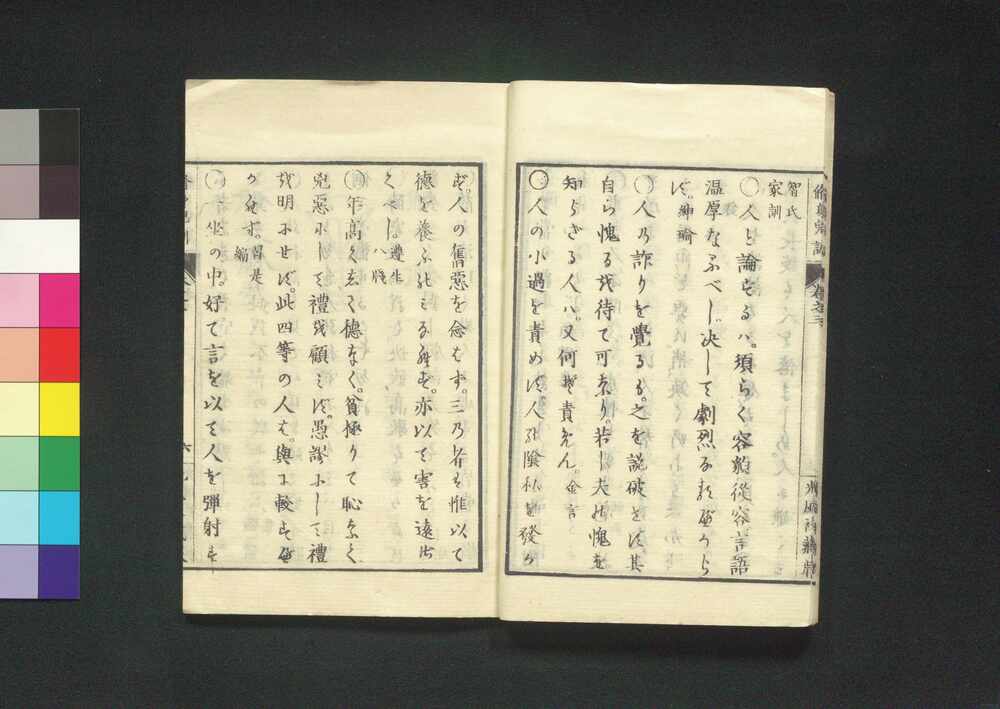 智氏
家訓
○人と論ずるハ。須らく容貌從容言語
温厚なるべし。决して劇烈なるべから
ず。紳瑜
○人の詐りを覺るも。之を説破せず其
自ら愧るを待て可なり。若し夫れ愧を
知らざる人ハ。又何ぞ責めん。金言
○人の小過を責めず人の陰私を發か
ず。人の舊惡を念はず。三の者は惟以て
德を養ふのみならず。亦以て害を遠ざ
くべし。遵生
八牋
○年高くして德なく。貧極りて恥なく
兇惡にして禮を顧みず。愚謬にして禮
を明にせず。此四等の人は。與に較すべ
からず。習是
編
○一坐の中。好て言を以て人を彈射す